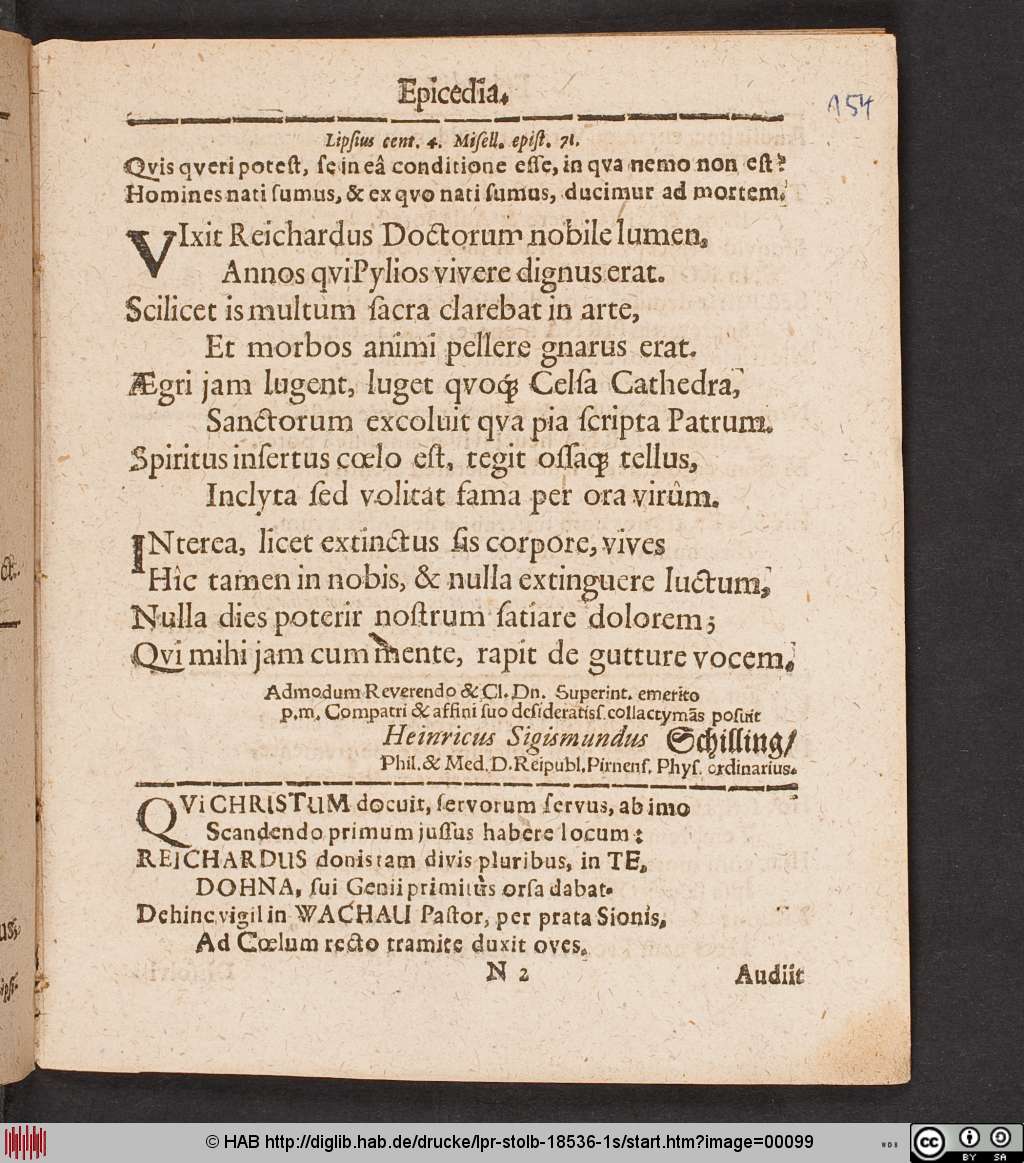 Epicedia.
154
Lipſius cent. 4. Miſell. epiſt. 71.
Qvis qveri poteſt, ſe in eâ conditione eſſe, in qva nemo non eſt?
Homines nati ſumus, & ex qvo nati ſumus, ducimur ad mortem.
VIxit Reichardus Doctorum nobile lumen,
Annos qvi Pylios vivere dignus erat.
Scilicet is multum ſacra clarebat in arte,
Et morbos animi pellere gnarus erat.
Ægri jam lugent, luget qvoq́; Celſa Cathedra,
Sanctorum excoluit qva pia ſcripta Patrum.
Spiritus inſertus cœlo eſt, tegit oſſaq; tellus,
Inclyta ſed volitat fama per ora virûm.
INterea, licet extinctus ſis corpore, vives
Hîc tamen in nobis, & nulla extinguere luctum,
Nulla dies poterir noſtrum ſatiare dolorem;
Qvi mihi jam cum mente, rapit de gutture vocem.
Admodum Reverendo & Cl. Dn. Superint. emerito
p. m. Compatri & affini ſuo deſideratiſſ. collacrymãs poſuit
Heinricus Sigismundus Schilling/
Phil. & Med. D. Reipubl. Pirnenſ. Phyſ. ordinarius.
QVi CHRISTUM docuit, ſervorum ſervus, ab imo
Scandendo primum juſſus habere locum:
REICHARDUS donis tam divis pluribus, in TE,
DOHNA, ſui Genii primitùs orſa dabat.
Dehinc vigil in WACHAU Paſtor, per prata Sionis,
Ad Cœlum recto tramite duxit oves.
N 2
Audiit
© HAB http://diglib.hab.de/drucke/lpr-stolb-18536-1s/start.htm?image=00099
WDB
cc
BY SA